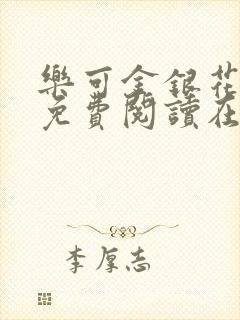 樂可金銀花
免費閱讀在
李厚志